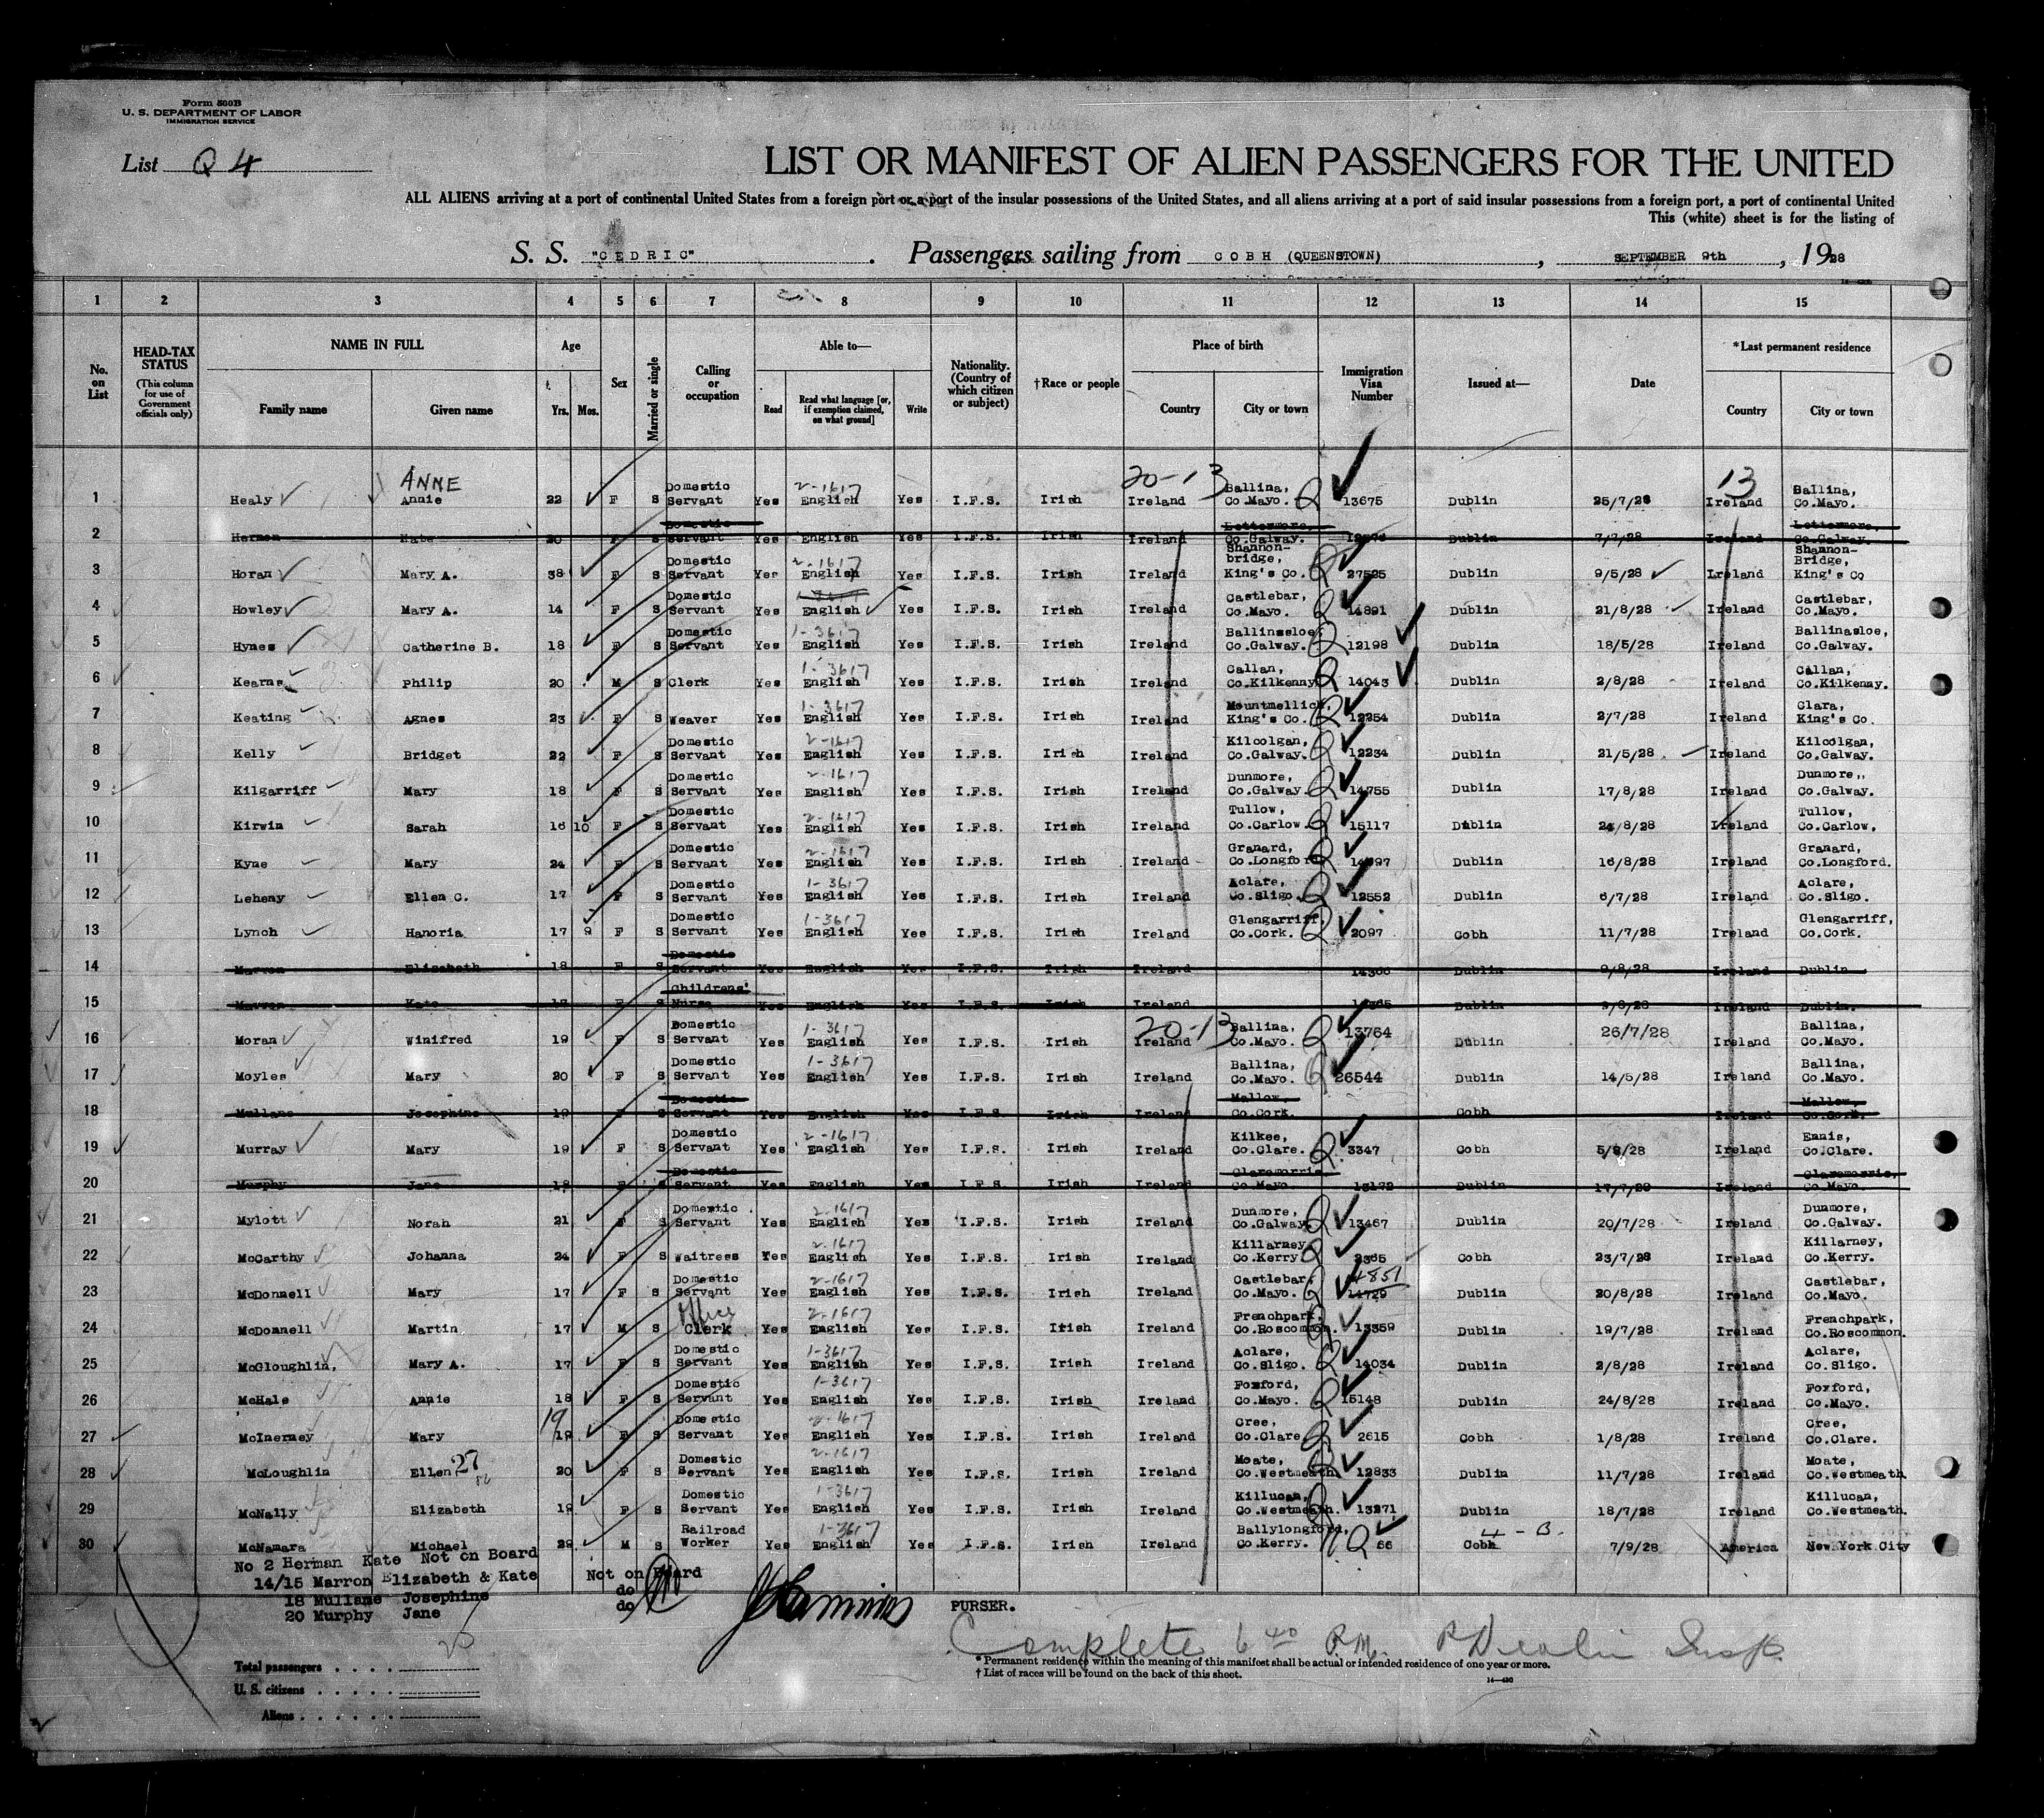 Form 500B
U. S. DEPARTMENT OF LABOR
IMMIGRATION SERVICE
List Q 4
LIST OR MANIFEST OF ALIEN PASSENGERS FOR THE UNITED
ALL ALIENS arriving at a port of continental United States from a foreign port or a port of the insular possessions of the United States, and all aliens arriving at a port of said insular possessions from a foreign port, a port of continental United
This (white) sheet is for the listing of
S. S. "CEDRIC". Passengers sailing from COBH (QUEENSTOWN), SEPTEMBER 9th, 1928
1 2 3 4 5 6 7 8 9 10 11 12 13 14 15
No. on List
HEAD-TAX STATUS
(This column for use of Government officials only)
NAME IN FULL
Family name Given name
Age
Yrs. Mos.
Sex
Married or single
Calling or occupation
Able to—
Read
Read what language [or, if exemption claimed, on what ground]
Write
Nationality. (Country of which citizen or subject)
†Race or people
Place of birth
Country City or town
Immigration Visa Number
Issued at—
Date
*Last permanent residence
Country City or town
ANNE 2-1617 20-13 13
1 Healy Annie 22 F S Domestic Servant Yes English Yes I.F.S. Irish Ireland Ballina, Co.Mayo. Q 13675 Dublin 25/7/28 Ireland Ballina, Co.Mayo.
2 Herman Kate 20 F S Domestic Servant Yes English Yes I.F.S. Irish Ireland Lettermore, Co.Galway. Dublin 7/7/28 Ireland Lettermore, Co.Galway.
3 Horan Mary A. 38 F S Domestic Servant Yes 2-1617 English Yes I.F.S. Irish Ireland Shannon-bridge, King's Co. Q 27525 Dublin 9/5/28 Ireland Shannon-Bridge, King's Co
4 Howley Mary A. 14 F S Domestic Servant Yes English Yes I.F.S. Irish Ireland Castlebar, Co.Mayo. Q 14891 Dublin 21/8/28 Ireland Castlebar, Co.Mayo.
5 Hynes Catherine B. 18 F S Domestic Servant Yes 1-3617 English Yes I.F.S. Irish Ireland Ballinasloe, Co.Galway. Q 12198 Dublin 18/5/28 Ireland Ballinasloe, Co.Galway.
6 Kearns Philip 20 M S Clerk Yes 1-3617 English Yes I.F.S. Irish Ireland Callan, Co.Kilkenny Q 14043 Dublin 2/8/28 Ireland Callan, Co.Kilkenny.
7 Keating Agnes 23 F S Weaver Yes 1-3617 English Yes I.F.S. Irish Ireland Mountmellick, King's Co. Q 12254 Dublin 2/7/28 Ireland Clara, King's Co.
8 Kelly Bridget 22 F S Domestic Servant Yes 2-1617 English Yes I.F.S. Irish Ireland Kilcolgan, Co.Galway. Q 12234 Dublin 21/5/28 Ireland Kilcolgan, Co.Galway.
9 Kilgarriff Mary 18 F S Domestic Servant Yes 2-1617 English Yes I.F.S. Irish Ireland Dunmore, Co.Galway. Q 14755 Dublin 17/8/28 Ireland Dunmore,, Co.Galway.
10 Kirwin Sarah 16 10 F S Domestic Servant Yes 2-1617 English Yes I.F.S. Irish Ireland Tullow, Co.Carlow. Q 15117 Dublin 24/8/28 Ireland Tullow, Co.Carlow,
11 Kyne Mary 24 F S Domestic Servant Yes 2-1617 English Yes I.F.S. Irish Ireland Granard, Co.Longford Q Dublin 16/8/28 Ireland Granard, Co.Longford.
12 Leheny Ellen C. 17 F S Domestic Servant Yes 1-3617 English Yes I.F.S. Irish Ireland Aclare, Co.Sligo. Q 12552 Dublin 6/7/28 Ireland Aclare, Co.Sligo.
13 Lynch Hanoria 17 9 F S Domestic Servant Yes 1-3617 English Yes I.F.S. Irish Ireland Glengarriff, Co.Cork. Q 2097 Cobh 11/7/28 Ireland Glengarriff, Co.Cork.
14 Marron Elizabeth 18 F S Domestic Servant Yes English Yes I.F.S. Irish Ireland 14366 Dublin 9/8/28 Ireland Dublin
15 Marron Kate 17 F S Childrens' Nurse Yes English Yes I.F.S. Irish Ireland 14365 Dublin 9/8/28 Ireland Dublin.
16 Moran Winifred 19 F S Domestic Servant Yes 1-3617 English Yes I.F.S. Irish 20-13 Ireland Ballina, Co.Mayo. Q 13764 Dublin 26/7/28 Ireland Ballina, Co.Mayo.
17 Moyles Mary 20 F S Domestic Servant Yes 1-3617 English Yes I.F.S. Irish Ireland Ballina, Co.Mayo. Q 26544 Dublin 14/5/28 Ireland Ballina, Co.Mayo.
18 Mullane Josephine 19 F S Domestic Servant Yes English Yes I.F.S. Irish Ireland Mallow, Co.Cork. Cobh Ireland Mallow, Co.Cork.
19 Murray Mary 19 F S Domestic Servant Yes 2-1617 English Yes I.F.S. Irish Ireland Kilkee, Co.Clare. Q 3347 Cobh 5/8/28 Ireland Ennis, Co.Clare.
20 Murphy Jane 18 F S Domestic Servant Yes English Yes I.F.S. Irish Ireland Claremorris, Co.Mayo. 13172 Dublin 17/7/28 Ireland Claremorris, Co.Mayo.
21 Mylott Norah 21 F S Domestic Servant Yes 2-1617 English Yes I.F.S. Irish Ireland Dunmore, Co.Galway. Q 13467 Dublin 20/7/28 Ireland Dunmore, Co.Galway.
22 McCarthy Johanna 24 F S Waitress Yes 2-1617 English Yes I.F.S. Irish Ireland Killarney, Co.Kerry Q 2365 Cobh 23/7/28 Ireland Killarney, Co.Kerry.
23 McDonnell Mary 17 F S Domestic Servant Yes 2-1617 English Yes I.F.S. Irish Ireland Castlebar, Co.Mayo. Q 14851 14729 Dublin 20/8/28 Ireland Castlebar, Co.Mayo.
24 McDonnell Martin 17 M S Office Clerk Yes 2-1617 English Yes I.F.S. Irish Ireland Frenchpark, Co.Roscommon. Q 13359 Dublin 19/7/28 Ireland Frenchpark, Co.Roscommon.
25 McGloughlin, Mary A. 17 F S Domestic Servant Yes 1-3617 English Yes I.F.S. Irish Ireland Aclare, Co.Sligo. Q 14034 Dublin 2/8/28 Ireland Aclare, Co.Sligo.
26 McHale Annie 18 F S Domestic Servant Yes 1-3617 English Yes I.F.S. Irish Ireland Foxford, Co.Mayo. Q 15148 Dublin 24/8/28 Ireland Foxford, Co.Mayo.
27 McInerney Mary 19 19 F S Domestic Servant Yes 2-1617 English Yes I.F.S. Irish Ireland Cree, Co.Clare Q 2615 Cobh 1/8/28 Ireland Cree, Co.Clare.
28 McLoughlin Ellen 27 20 F S Domestic Servant Yes 2-1617 English Yes I.F.S. Irish Ireland Moate, Co.Westmeath. Q 12833 Dublin 11/7/28 Ireland Moate, Co.Westmeath.
29 McNally Elizabeth 19 F S Domestic Servant Yes 1-3617 English Yes I.F.S. Irish Ireland Killucan, Co.Westmeath. Q 13271 Dublin 18/7/28 Ireland Killucan, Co.Westmeath.
30 McNamara Michael 29 M S Railroad Worker Yes 1-3617 English Yes I.F.S. Irish Ireland Ballylongford, Co.Kerry. NQ 66 Cobh 4-B. 7/9/28 America New York City
No 2 Herman Kate Not on Board
14/15 Marron Elizabeth & Kate Not on Board
18 Mullane Josephine do
20 Murphy Jane do
PURSER.
Complete 6 40 P.M. Insp.
Total passengers . . . .
U. S. citizens . . . . .
Aliens . . . . . .
* Permanent residence within the meaning of this manifest shall be actual or intended residence of one year or more.
† List of races will be found on the back of this sheet.
14—430